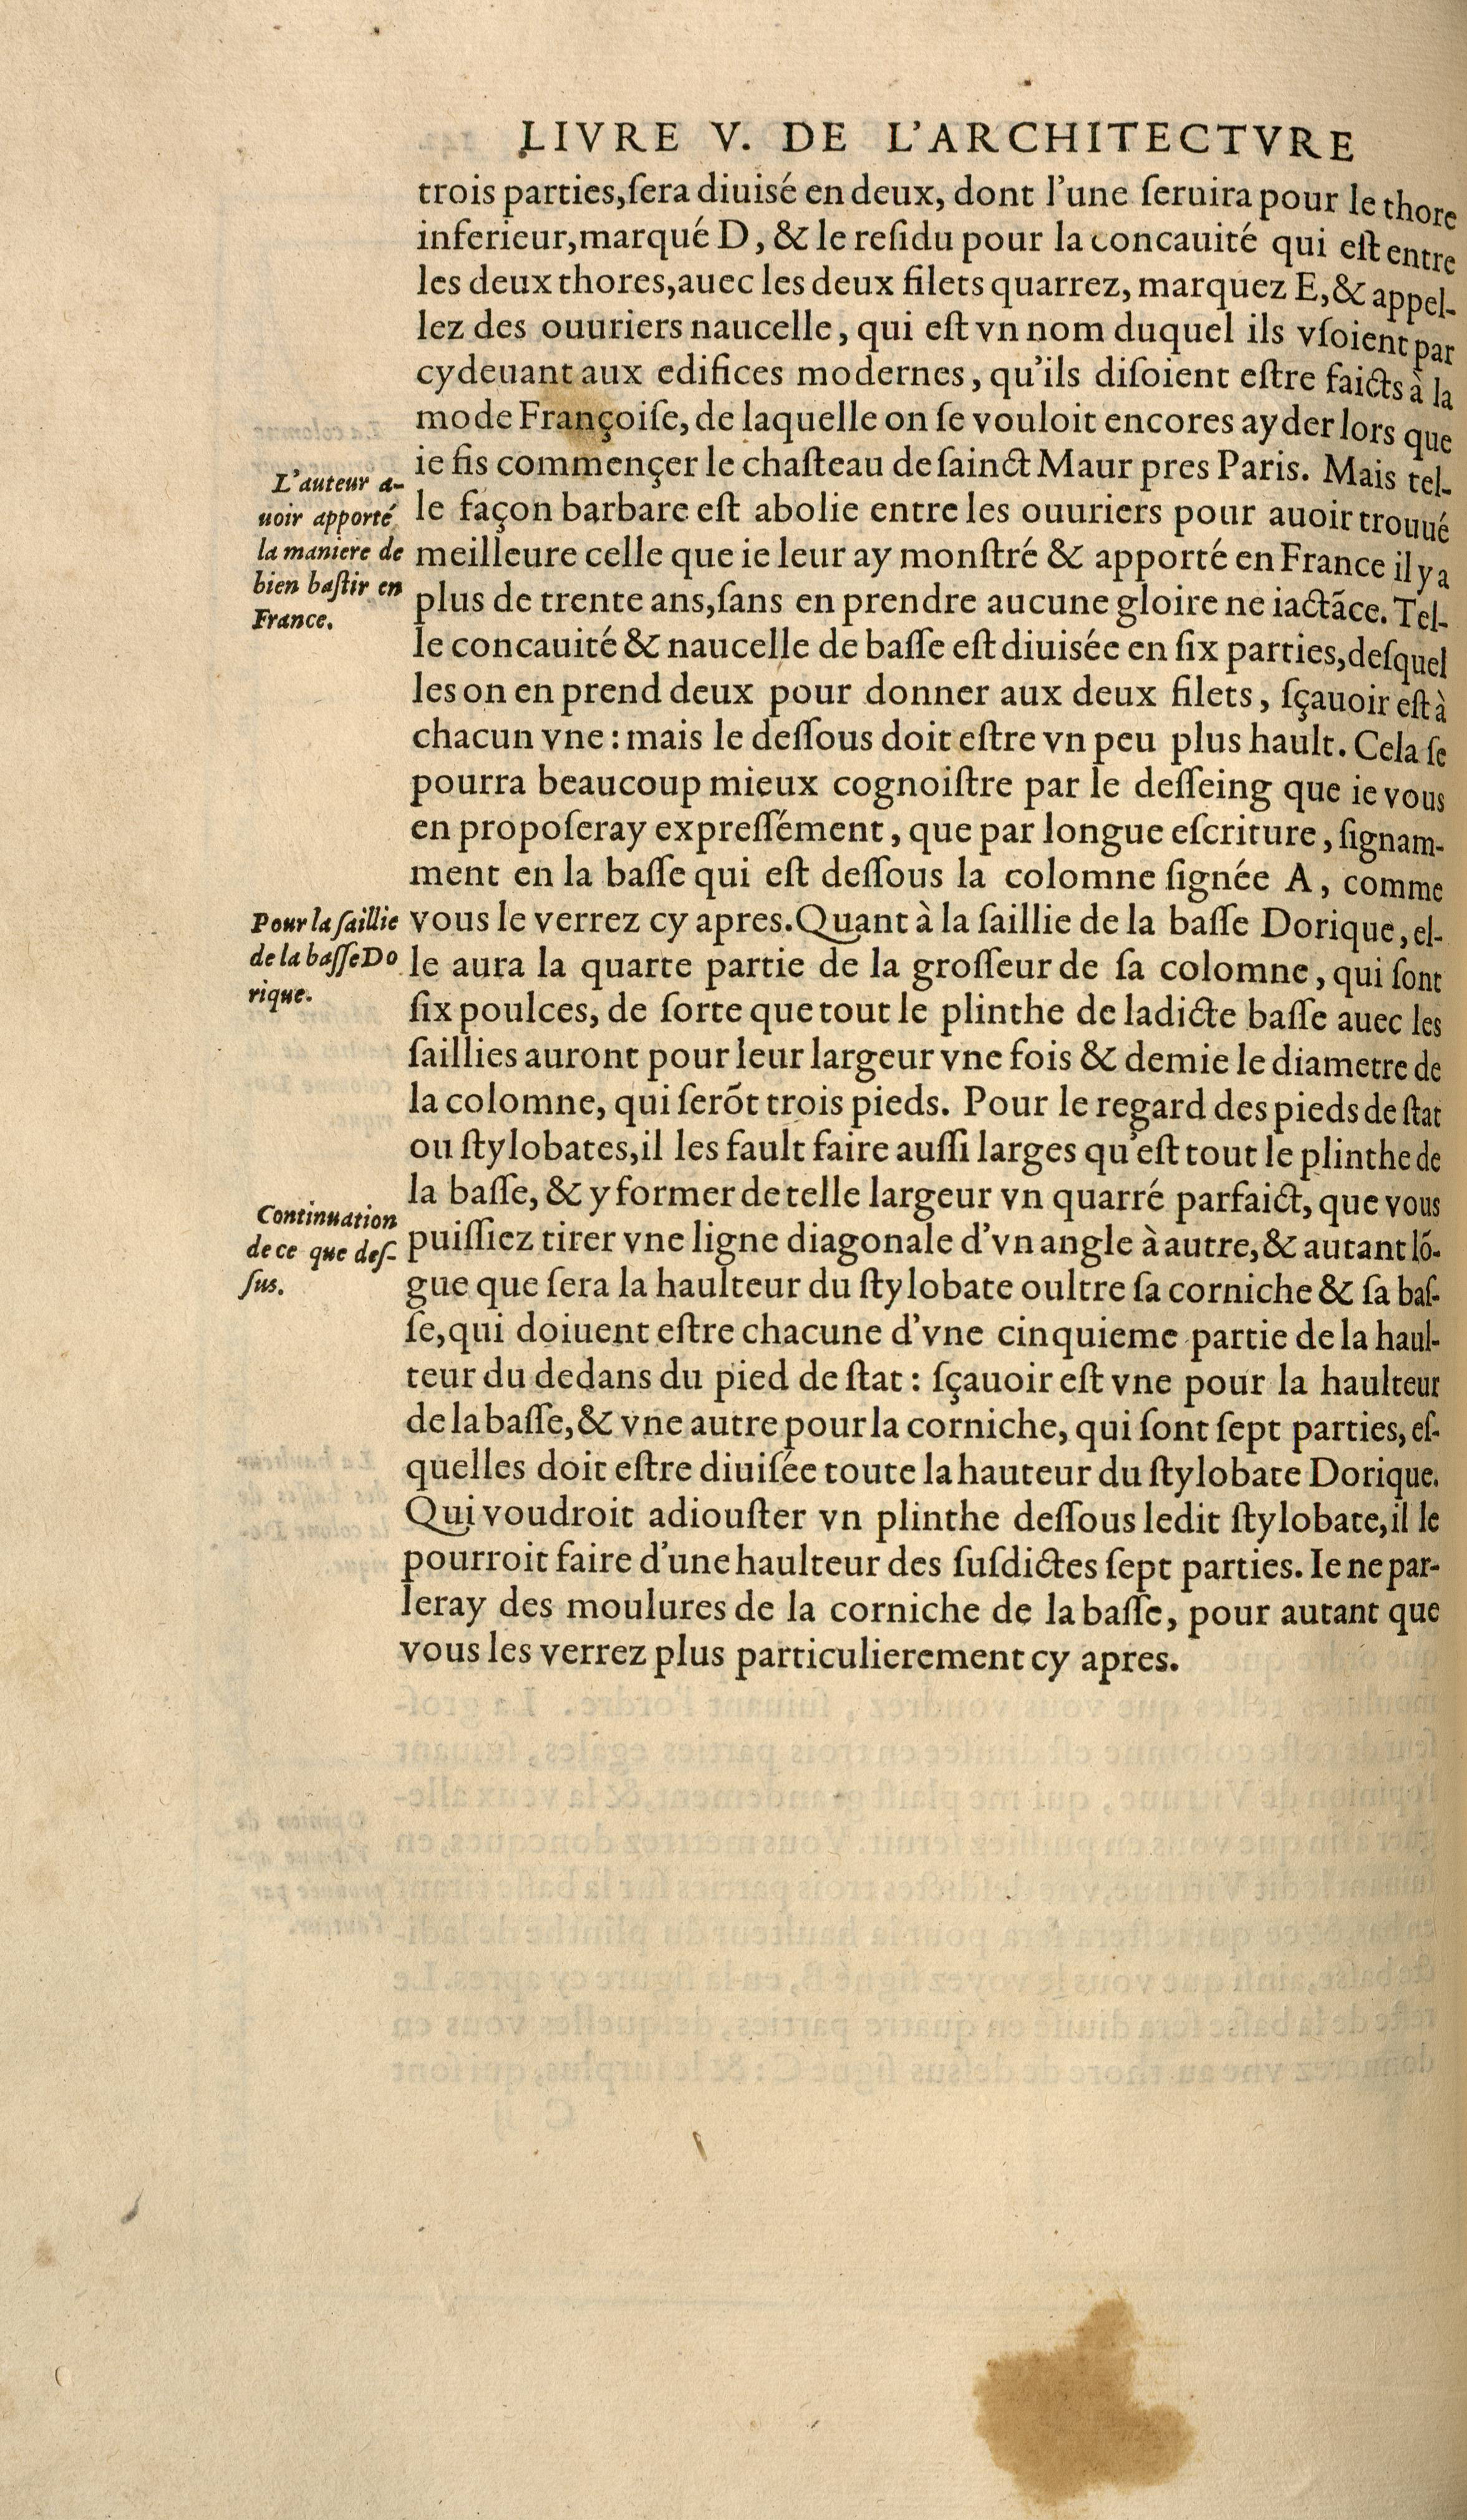 LIVRE V. DE L'ARCHITECTVRE
trois parties, ſera diuisé en deux, dont l'une ſeruira pour le thore
inferieur, marqué D, & le reſidu pour la concauité qui eſt entre
les deux thores, auec les deux filets quarrez, marquez E, & appel-
lez des ouuriers naucelle, qui eſt vn nom duquel ils vſoient par
cydeuant aux edifices modernes, qu'ils diſoient eſtre faicts à la
mode Françoiſe, de laquelle on ſe vouloit encores ayder lors que
ie fis commençer le chaſteau de ſainct Maur pres Paris. Mais tel-
le façon barbare eſt abolie entre les ouuriers pour auoir trouué
meilleure celle que ie leur ay monſtré & apporté en France il y a
plus de trente ans, ſans en prendre aucune gloire ne iactãce. Tel-
le concauité & naucelle de baſſe eſt diuisée en ſix parties, deſquel
les on en prend deux pour donner aux deux filets, ſçauoir eſt à
chacun vne: mais le deſſous doit eſtre vn peu plus hault. Cela ſe
pourra beaucoup mieux cognoiſtre par le deſſeing que ie vous
en propoſeray expreſſément, que par longue eſcriture, ſignam-
ment en la baſſe qui eſt deſſous la colomne ſignée A, comme
vous le verrez cy apres. Quant à la ſaillie de la baſſe Dorique, el-
le aura la quarte partie de la groſſeur de ſa colomne, qui ſont
ſix poulces, de ſorte que tout le plinthe de ladicte baſſe auec les
ſaillies auront pour leur largeur vne fois & demie le diametre de
la colomne, qui ſerõt trois pieds. Pour le regard des pieds de ſtat
ou ſtylobates, il les fault faire auſſi larges qu'eſt tout le plinthe de
la baſſe, & y former de telle largeur vn quarré parfaict, que vous
puiſſiez tirer vne ligne diagonale d'vn angle à autre, & autant lõ-
gue que ſera la haulteur du ſtylobate oultre ſa corniche & ſa baſ-
ſe, qui doiuent eſtre chacune d'vne cinquieme partie de la haul-
teur du dedans du pied de ſtat: ſçauoir eſt vne pour la haulteur
de la baſſe, & vne autre pour la corniche, qui ſont ſept parties, eſ-
quelles doit eſtre diuiſée toute la hauteur du ſtylobate Dorique.
Qui voudroit adiouſter vn plinthe deſſous ledit ſtylobate, il le
pourroit faire d'une haulteur des ſuſdictes ſept parties. Ie ne par-
leray des moulures de la corniche de la baſſe, pour autant que
vous les verrez plus particulierement cy apres.
L'auteur a-
uoir apporté
la maniere de
bien baſtir en
France.
Pour la ſaillie
de la baſſe Do
rique.
Continuation
de ce que deſ-
ſus.